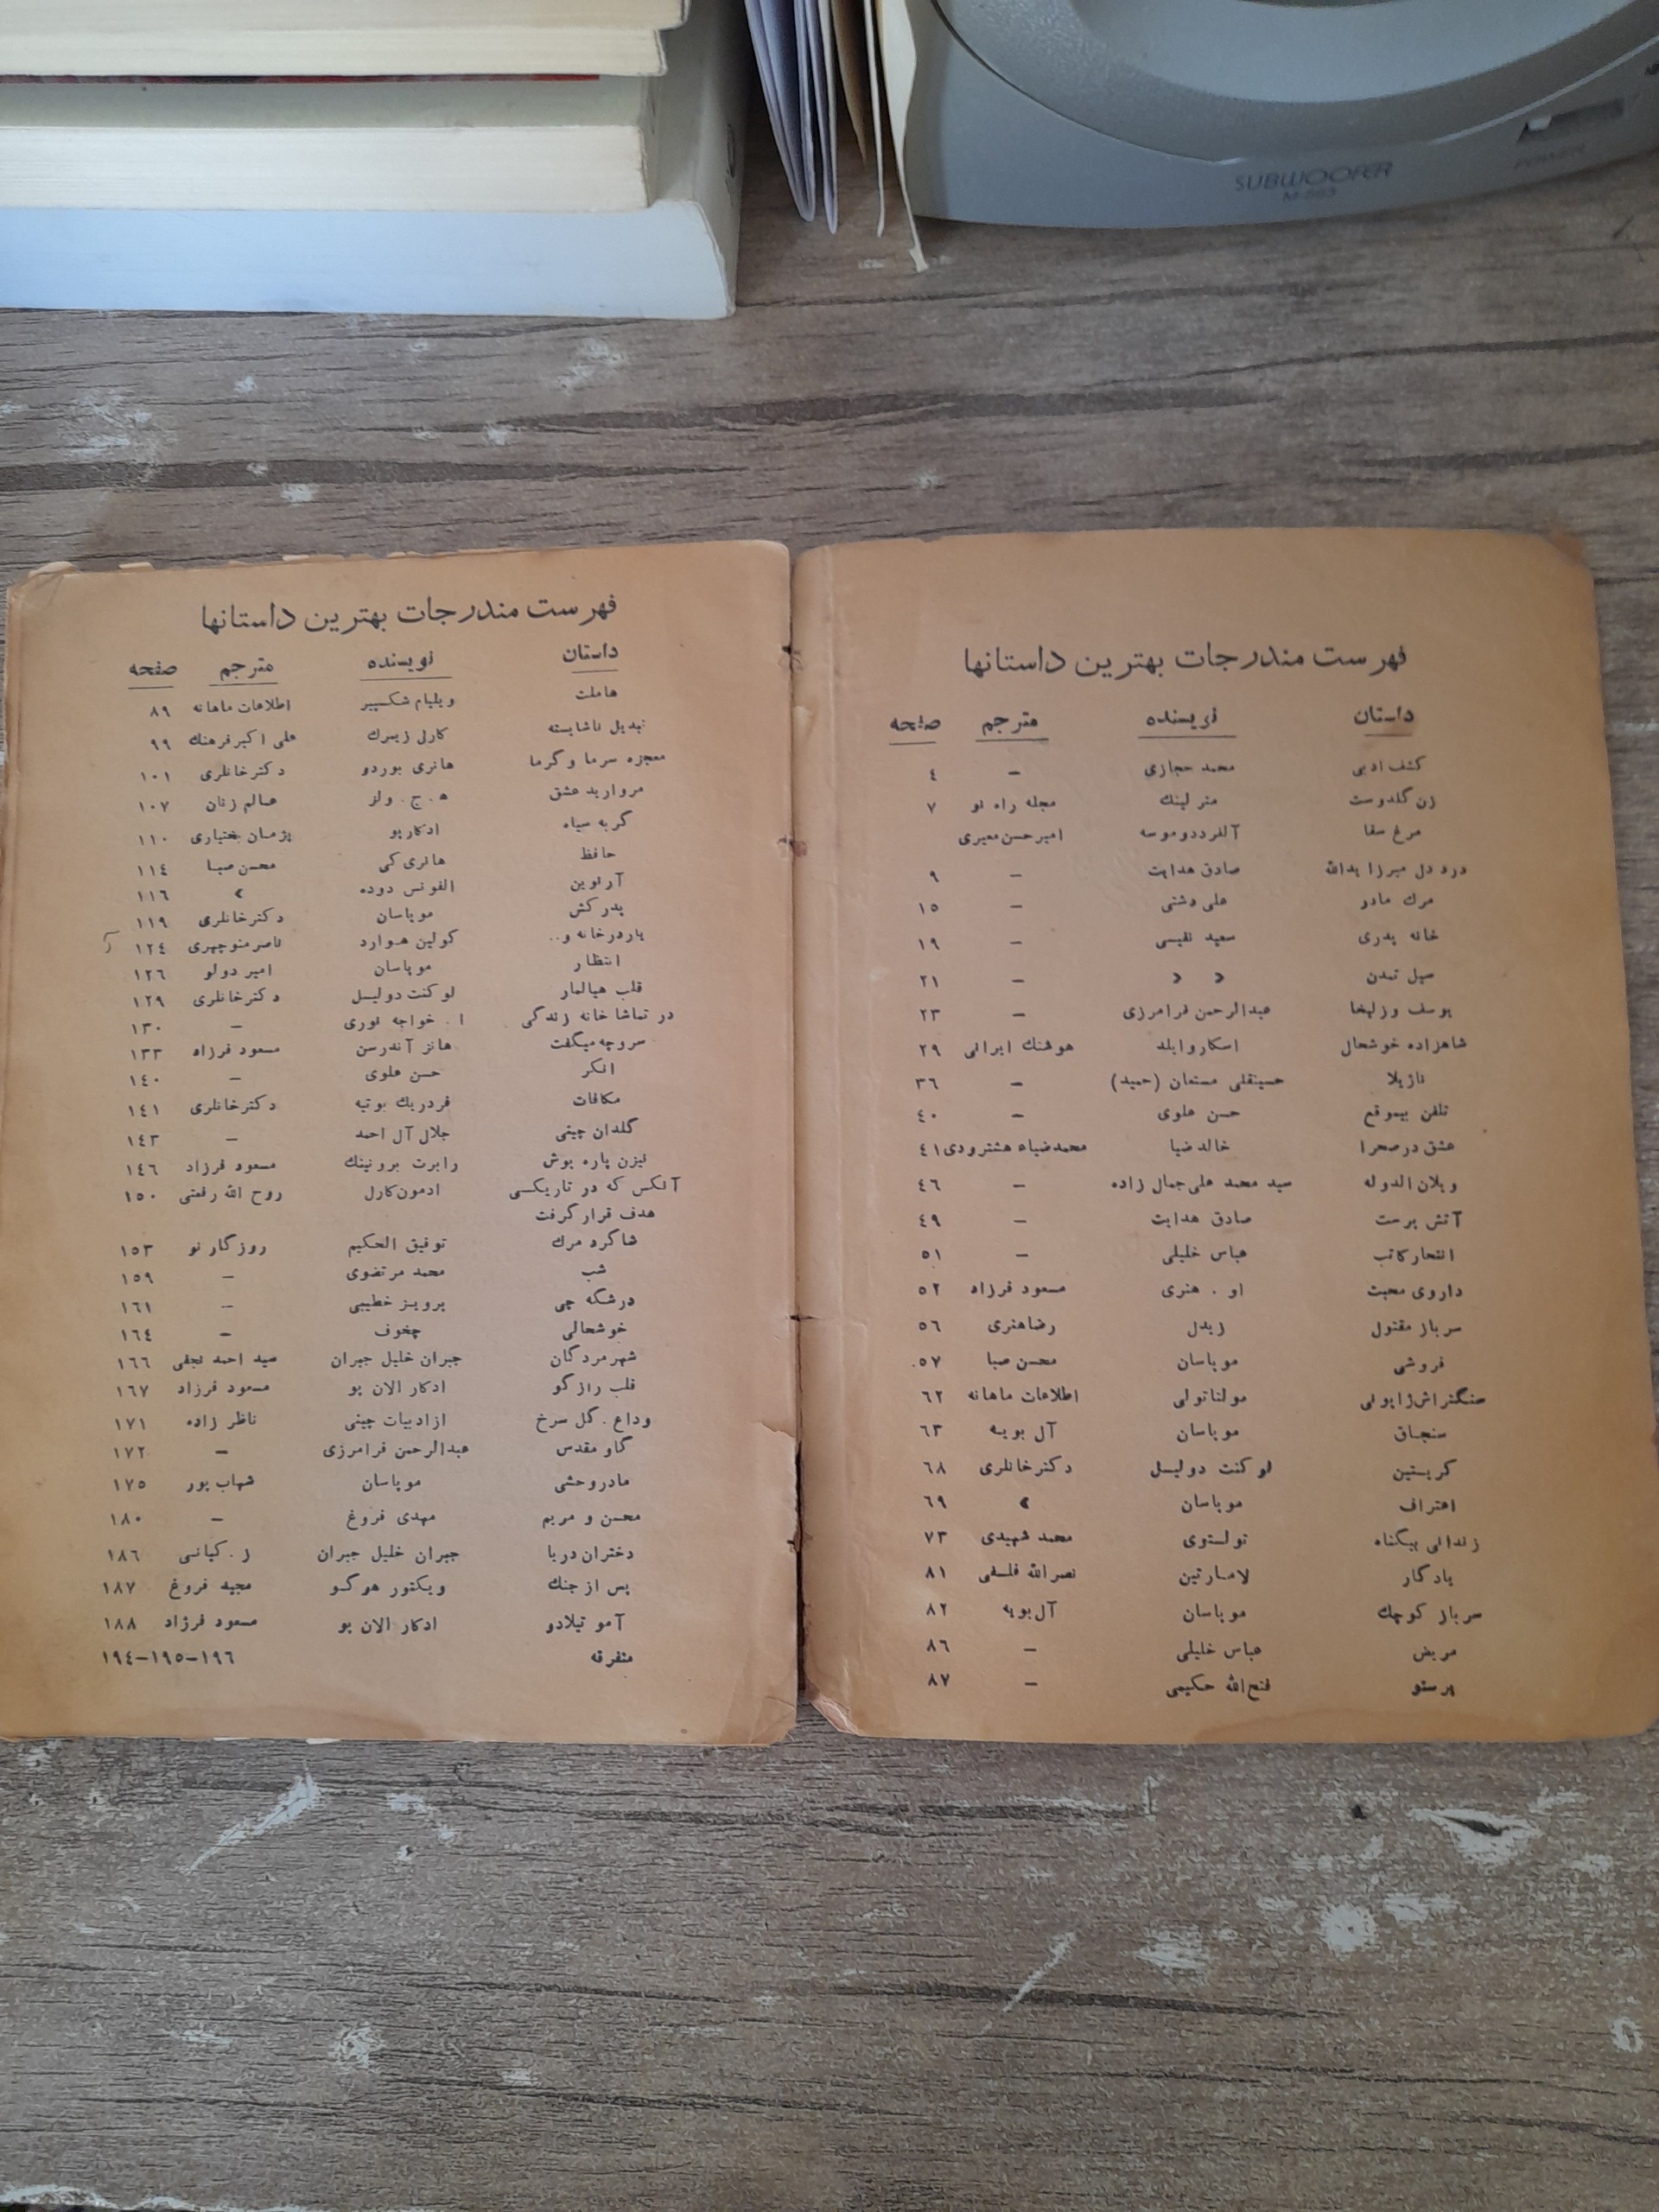 SUBWOOFER
M-563
POWER
فهرست مندرجات بهترین داستانها
داستان نویسنده مترجم صفحه
کشف ادبی محمد حجازی – ٤
زن گلدوست مترلینك مجله راه نو ۷
مرغ سقا آلفرددوموسه امیرحسن معیری
درد دل میرزا یدالله صادق هدایت – ۹
مرك مادر علی دشتی – ۱٥
خانه پدری سعید نفیسی – ۱۹
سیل تمدن » » – ۲۱
یوسف وزلیخا عبدالرحمن فرامرزی – ۲۳
شاهزاده خوشحال اسکاروایلد هوشنك ایرانی ۲۹
نازیلا حسینقلی مستعان (حمید) – ۳٦
تلفن بیموقع حسن علوی – ٤۰
عشق درصحرا خالدضیا محمدضیاء هشترودی ٤۱
ویلان الدوله سید محمد علی جمال زاده – ٤٦
آتش پرست صادق هدایت – ٤۹
انتحارکاتب عباس خلیلی – ٥۱
داروی محبت او . هنری مسعود فرزاد ٥۲
سرباز مقتول زیدل رضاهنری ٥٦
فروشی موپاسان محسن صبا ٥۷
سنگتراش ژاپونی مولتاتولی اطلاعات ماهانه ٦۲
سنجاق موپاسان آل بویه ٦۳
کریستین لوکنت دولیسل دکترخانلری ٦۸
اعتراف موپاسان » ٦۹
زندانی بیگناه تولستوی محمد شهیدی ۷۳
یادگار لامارتین نصرالله فلسفی ۸۱
سرباز کوچك موپاسان آل بویه ۸۲
مریض عباس خلیلی – ۸٦
پرستو فتح‌الله حکیمی – ۸۷
فهرست مندرجات بهترین داستانها
داستان نویسنده مترجم صفحه
هاملت ویلیام شکسپیر اطلاعات ماهانه ۸۹
تبدیل ناشایسته کارل زیمرك علی اکبرفرهنك ۹۹
معجزه سرما وگرما هانری بوردو دکترخانلری ۱۰۱
مروارید عشق ه . ج . ولز عالم زنان ۱۰۷
گربه سیاه ادگارپو پژمان بختیاری ۱۱۰
حافظ هانری کی محسن صبا ۱۱٤
آرلوین الفونس دوده » ۱۱٦
پدرکش موپاسان دکترخانلری ۱۱۹
یاردرخانه و.. کولین هوارد ناصرمنوچهری ۱۲٤
انتظار موپاسان امیر دولو ۱۲٦
قلب هیالمار لوکنت دولیسل دکترخانلری ۱۲۹
در تماشا خانه زندگی ا . خواجه نوری – ۱۳۰
سروچه میگفت هانز آندرسن مسعود فرزاد ۱۳۳
انگر حسن علوی – ۱٤۰
مکافات فردریك بوتیه دکترخانلری ۱٤۱
گلدان چینی جلال آل احمد – ۱٤۳
نیزن پاره پوش رابرت برونینك مسعود فرزاد ۱٤٦
آنکس که در تاریکی ادمون کارل روح الله رفعتی ۱٥۰
هدف قرار گرفت
شاگرد مرك توفیق الحکیم روزگار نو ۱٥۳
شب محمد مرتضوی – ۱٥۹
درشگه چی پرویز خطیبی – ۱٦۱
خوشحالی چخوف – ۱٦٤
شهرمردگان جبران خلیل جبران سید احمد نجفی ۱٦٦
قلب رازگو ادگار الان پو مسعود فرزاد ۱٦۷
وداع . گل سرخ ازادبیات چینی ناظر زاده ۱۷۱
گاو مقدس عبدالرحمن فرامرزی – ۱۷۲
مادروحشی موپاسان شهاب پور ۱۷٥
محسن و مریم مهدی فروغ – ۱۸۰
دختران دریا جبران خلیل جبران ز . کیانی ۱۸٦
پس ازجنك ویکتور هوگو مجید فروغ ۱۸۷
آمو تیلادو ادگار الان پو مسعود فرزاد ۱۸۸
متفرقه ۱۹٤–۱۹٥–۱۹٦